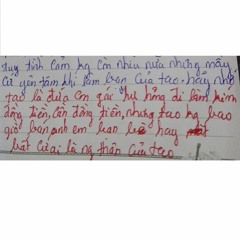 Tuy tình cảm kg còn nhiu nữa nhưng mày
cứ yên tâm khi làm bạn của tao. hãy nhớ
tao là đứa em gái hư hỏng đi làm kiếm
đồng tiền, cần đồng tiền, nhưng tao kg bao
giờ bán anh em bạn bè hay
bất cứ ai là ng thân của tao